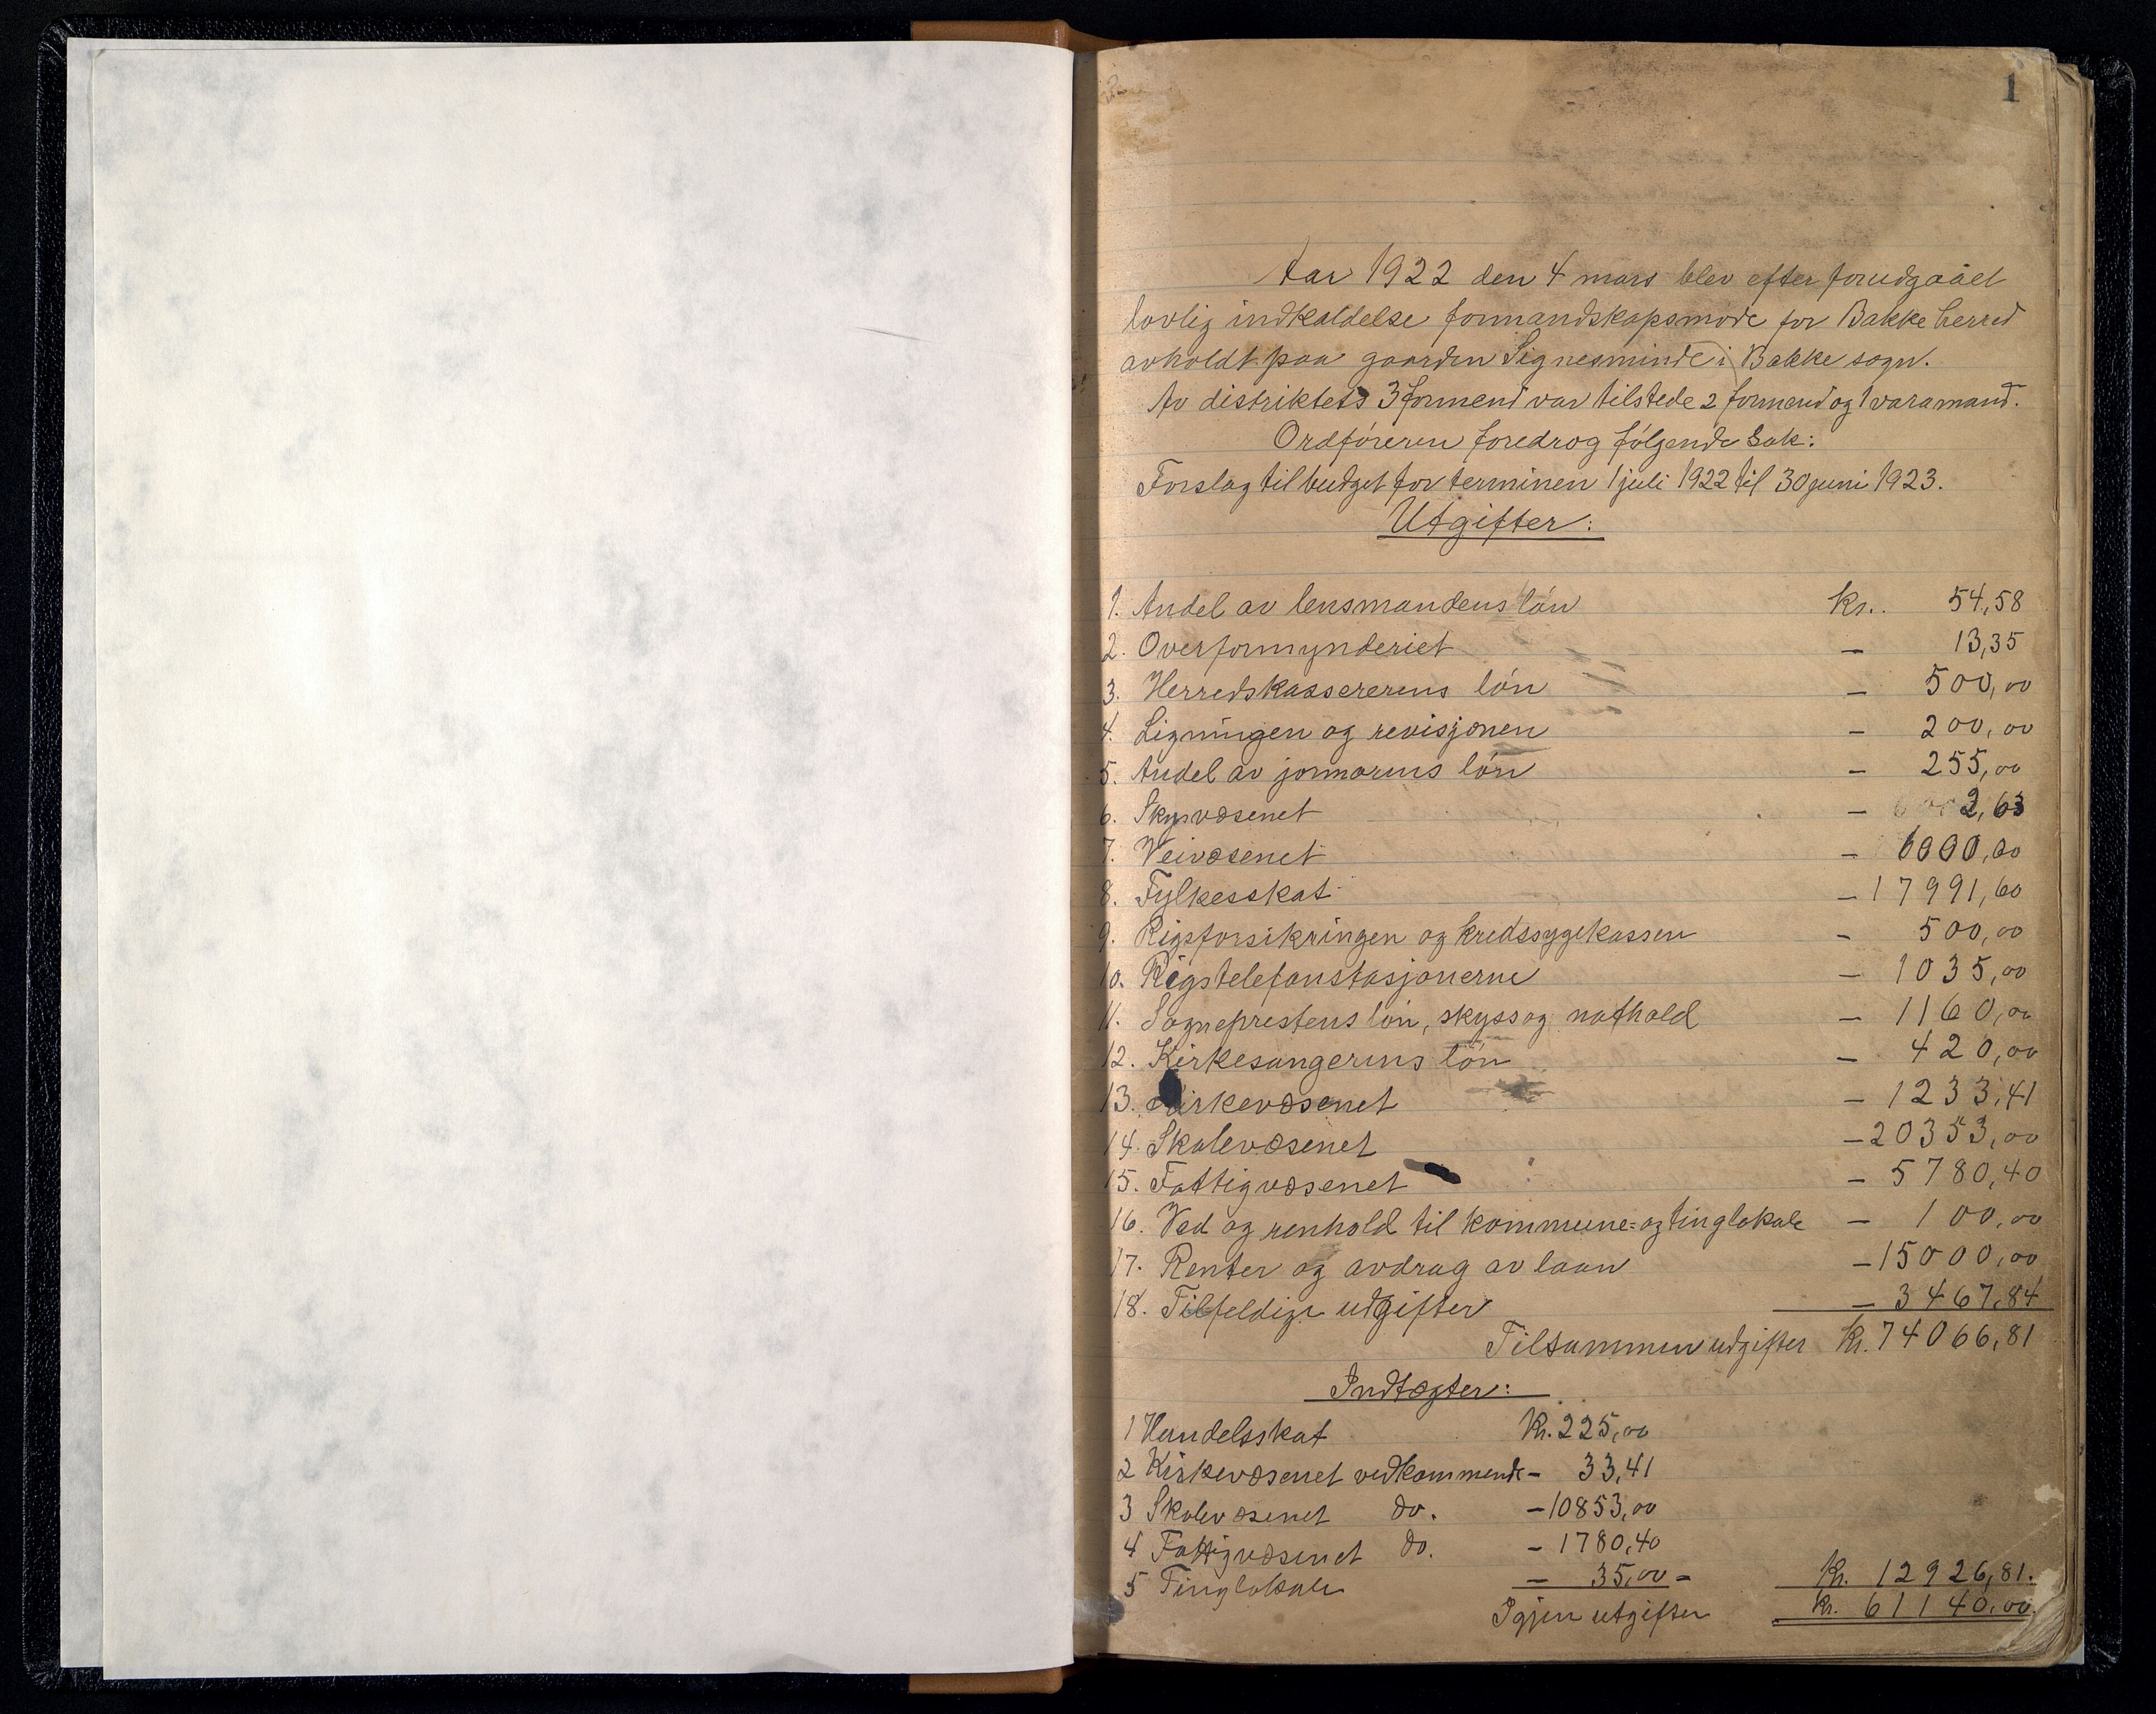 1
Aar 1922 den 4 mars blev efter forudgaaet
lovlig indkaldelse formandskapsmöde for Bakke herred
avholdt paa gaarden Signesminde i Bakke sogn.
Av distriktets 3 formend var tilstede 2 formend og 1 varamand.
Ordföreren foredrog fölgende sak:
Forslag til budget for terminen 1 juli 1922 til 30 juni 1923.
Utgifter:
1. Andel av lensmandens lön Kr.. 54,58
2. Overformynderiet — 13,35
3. Herredskassererens lön — 500,00
4. Ligningen og revisjonen — 200,00
5. Andel av jormorens lön — 255,00
6. Skysvæsenet — 2,63
7. Veivæsenet — 6000,00
8. Fylkesskat — 17991,60
9. Rigsforsikringen og kredssygekassen — 500,00
10. Rigstelefonstasjonerne — 1035,00
11. Sogneprestens lön, skyss og nathold — 1160,00
12. Kirkesangerens lön — 420,00
13. Kirkevæsenet — 1233,41
14. Skolevæsenet — 20353,00
15. Fattigvæsenet — 5780,40
16. Ved og renhold til kommune= og tinglokale — 100,00
17. Renter og avdrag av laan — 15000,00
18. Tilfeldige udgifter — 3467,84
Tilsammen udgifter Kr. 74066,81
Indtægter:
1 Handelsskat Kr. 225,00
2 Kirkevæsenet vedkommende — 33,41
3 Skolevæsenet do. — 10853,00
4 Fattigvæsenet do. — 1780,40
5 Tinglokale — 35,00 = Kr. 12926,81.
Igjen utgifter Kr. 61140,00.